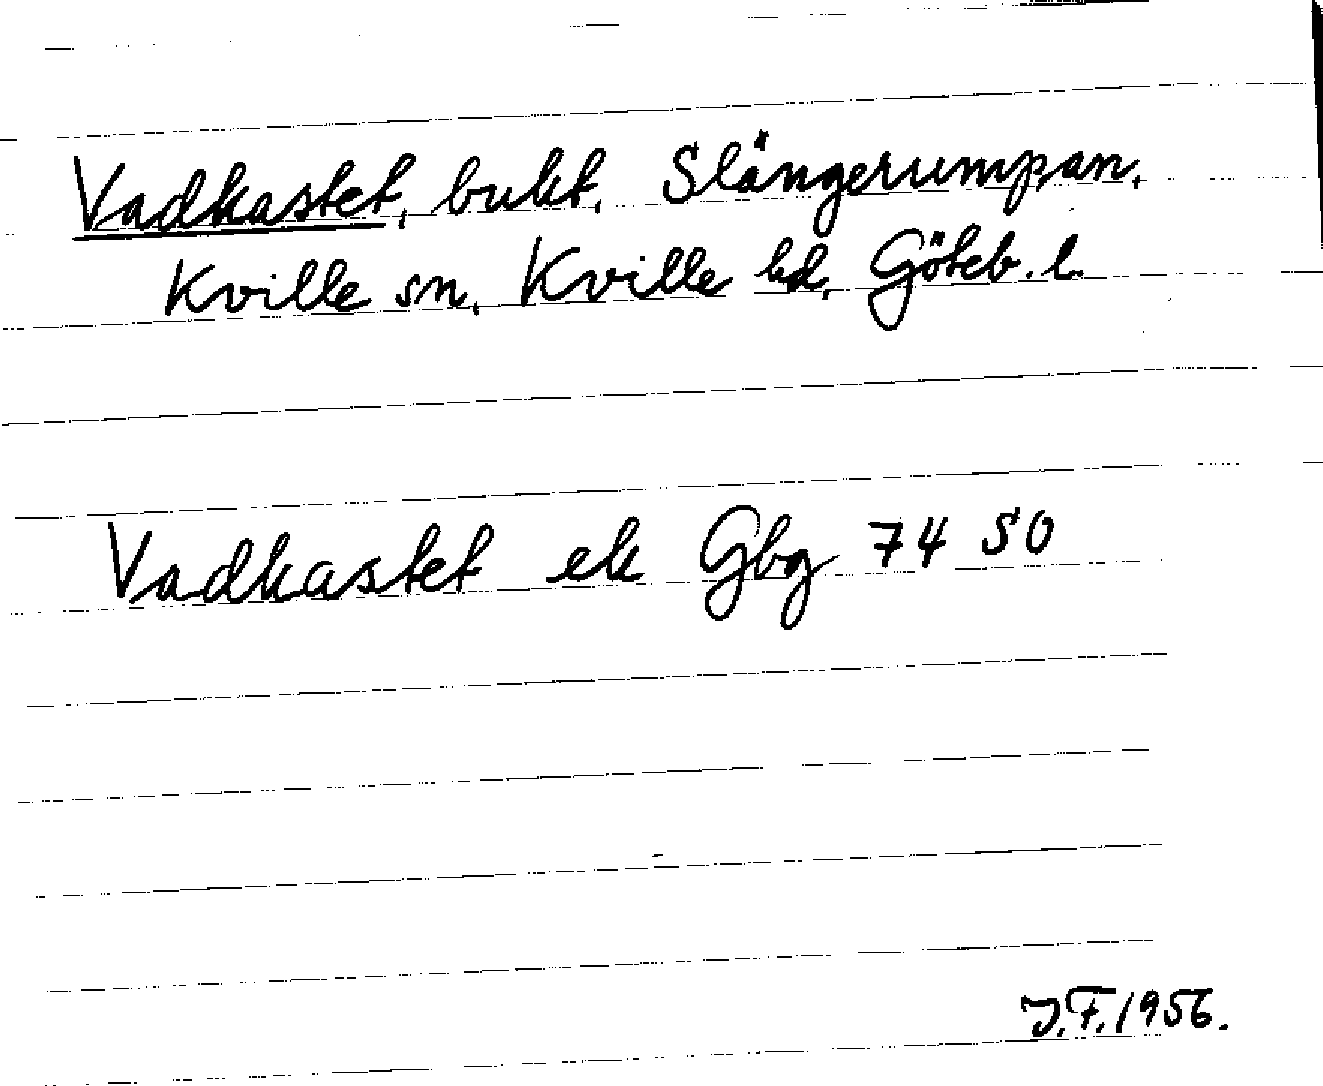 Vadkastet, bukt, Slängerumpan,
Kville sn, Kville hd, Göteb. l.
Vadkastet ek Gbg 74 SO
J.F. 1956.